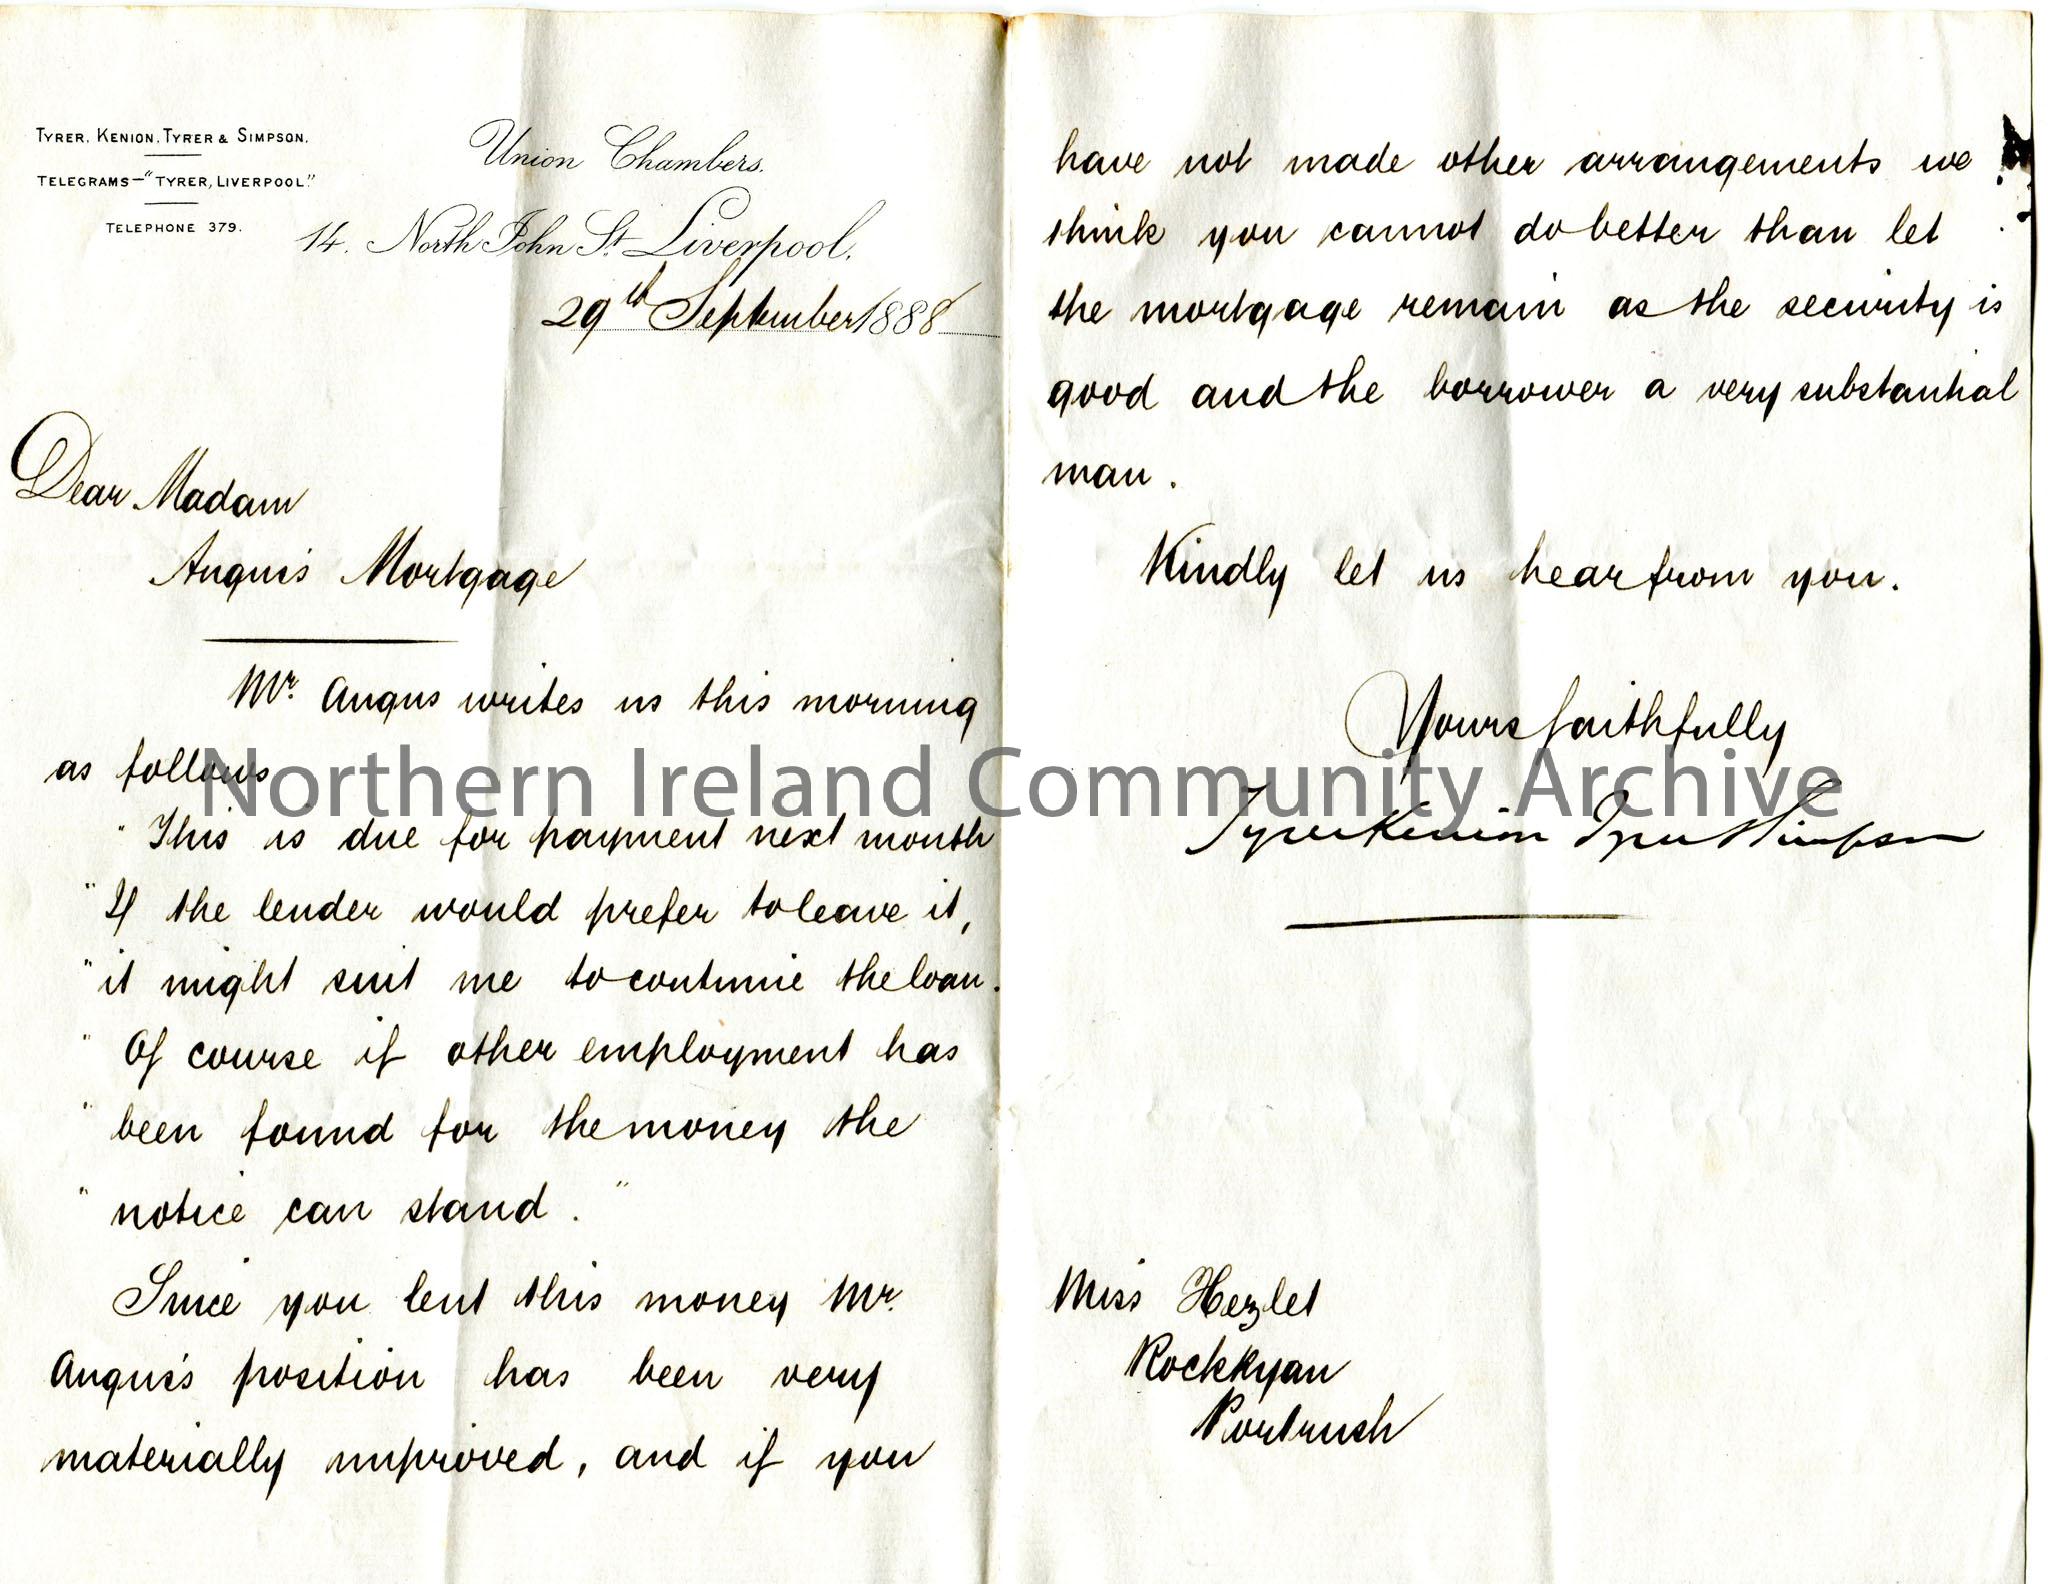 TYRER, KENION, TYRER & SIMPSON.
TELEGRAMS—"TYRER, LIVERPOOL."
TELEPHONE 379.
Union Chambers.
14. North John St. Liverpool,
29th September 1888
Dear Madam
Angus's Mortgage
Mr. Angus writes us this morning
as follows
"This is due for payment next month
"If the lender would prefer to leave it,
"it might suit me to continue the loan.
"Of course if other employment has
"been found for the money the
"notice can stand."
Since you lent this money Mr.
Angus's position has been very
materially improved, and if you
have not made other arrangements we
think you cannot do better than let
the mortgage remain as the security is
good and the borrower a very substantial
man.
Kindly let us hear from you.
Yours faithfully
Tyrer Kenion Tyrer & Simpson
Miss Hezlet
Rockryan
Portrush
Northern Ireland Community Archive